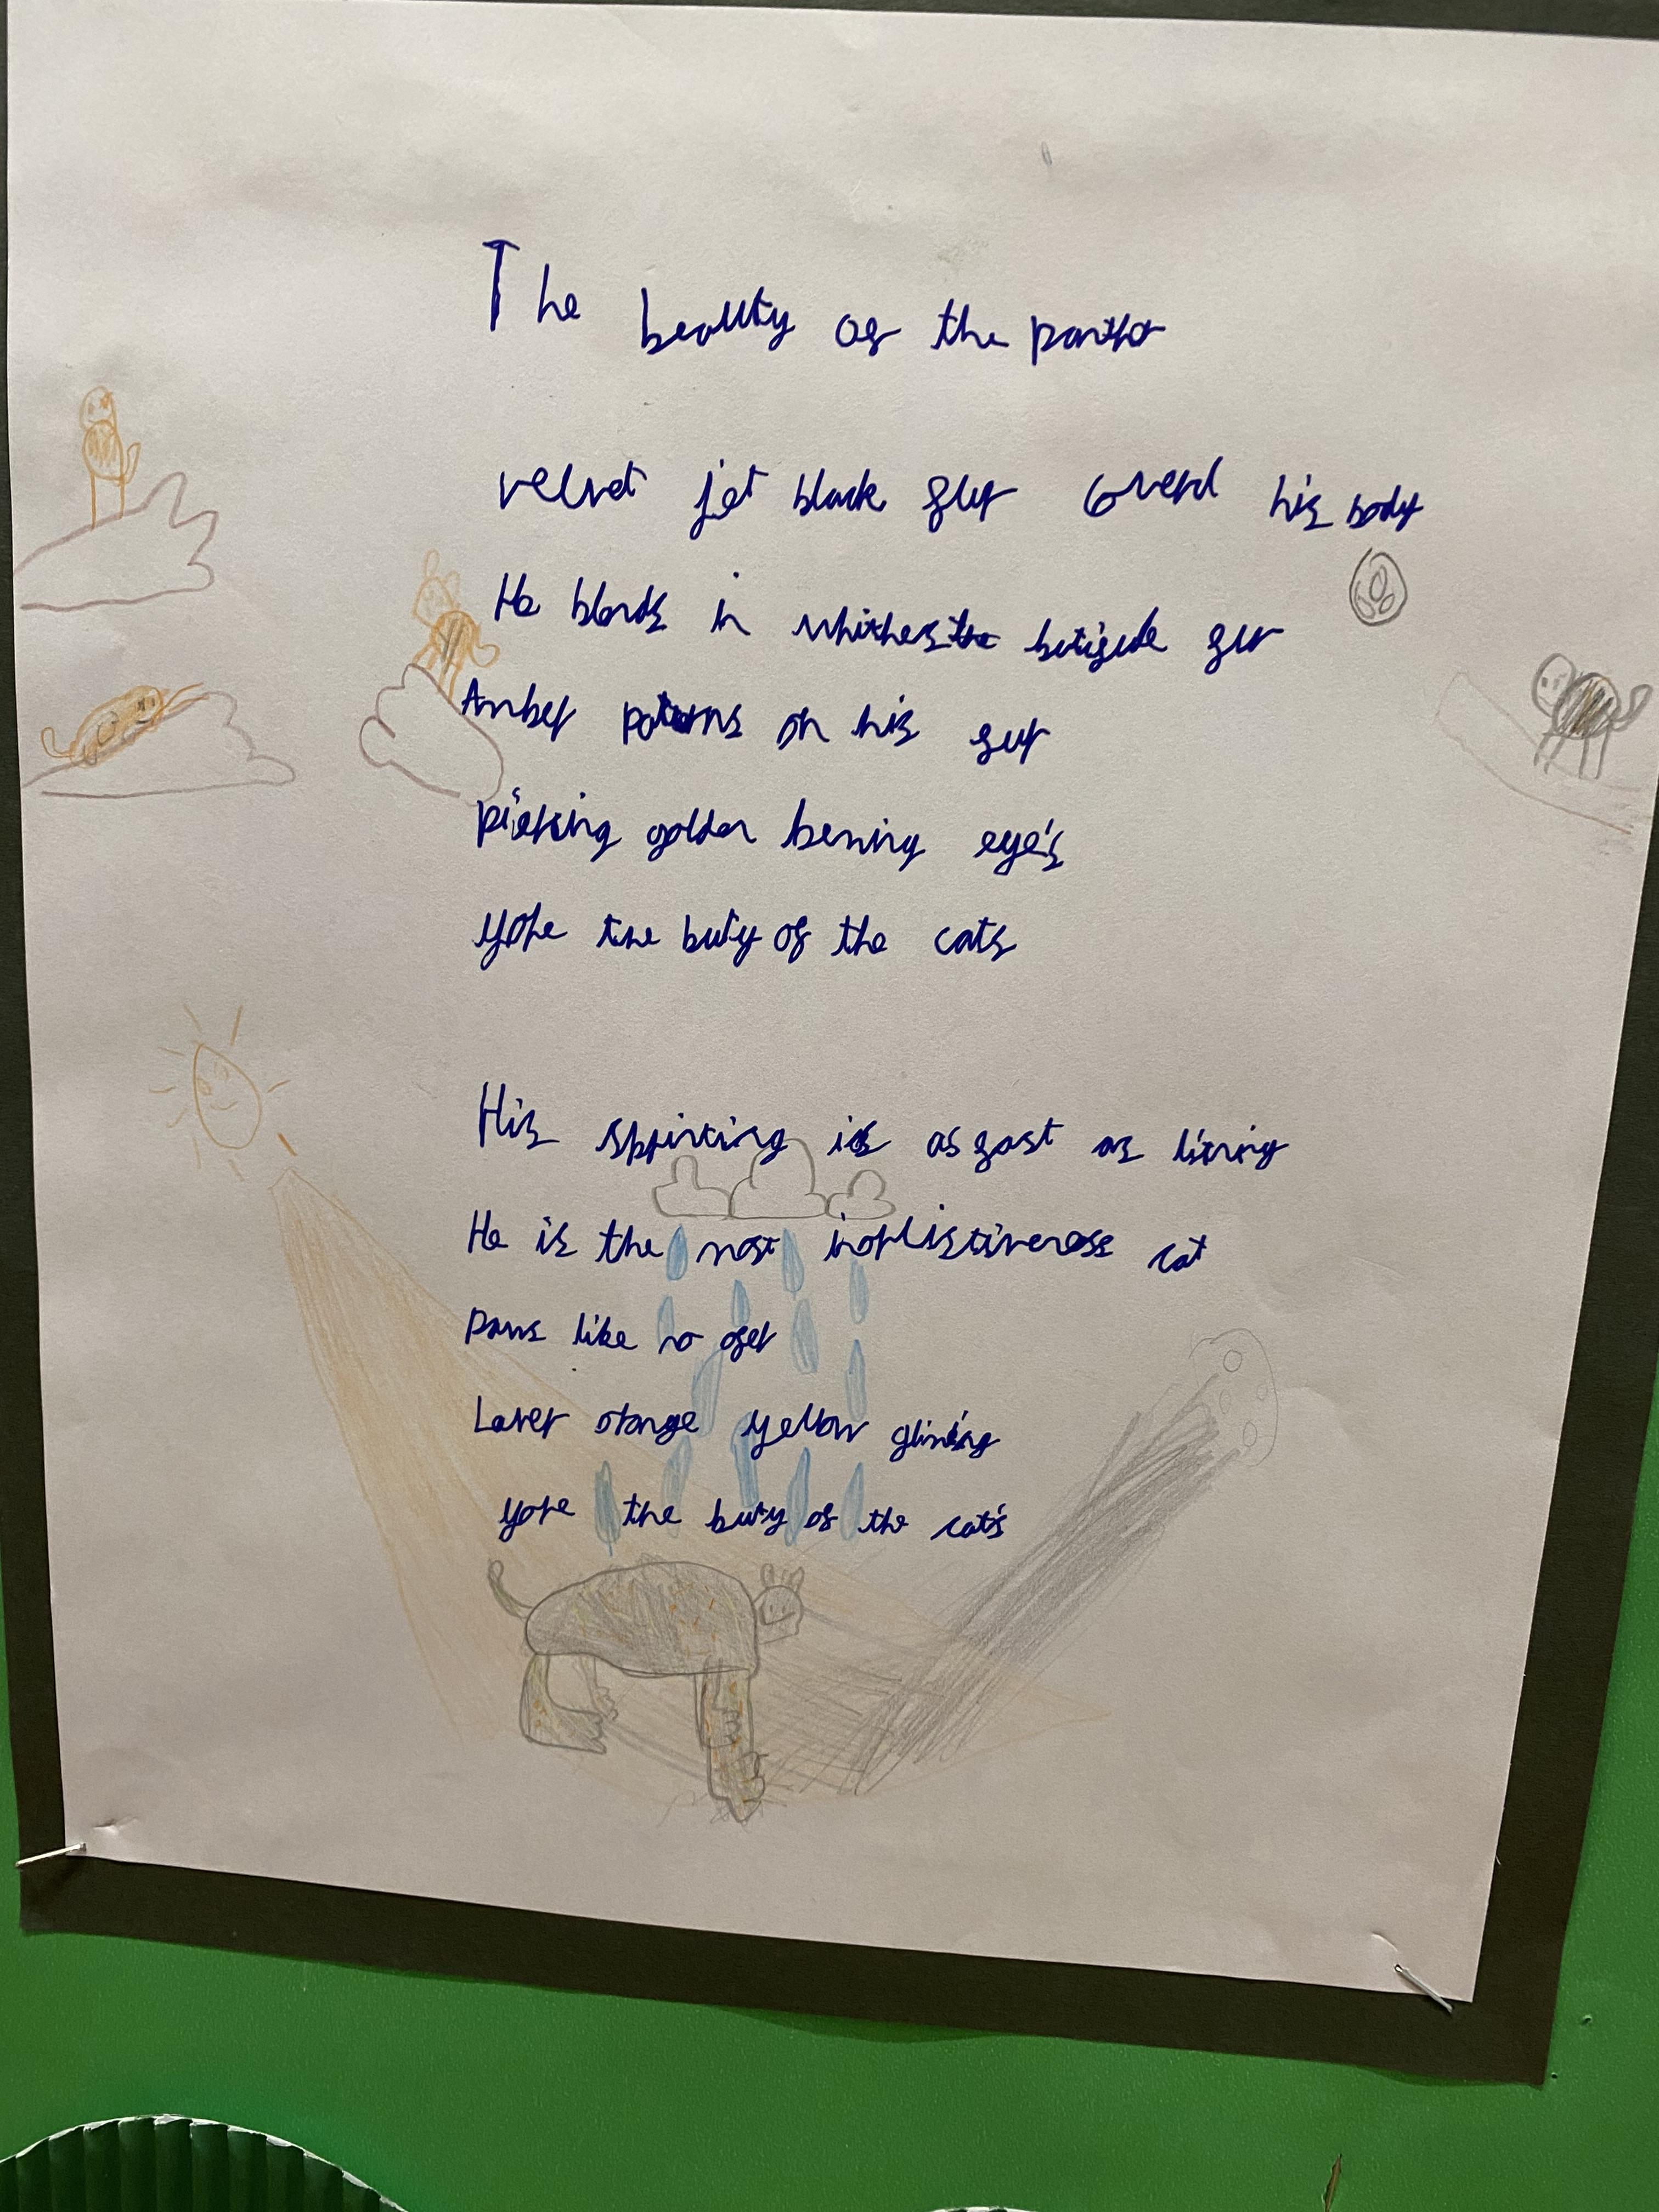 The beauty of the panther
velvet jet black fur coverd his body
He blends in whith the butifule fur
Amber paterns on his fur
piercing golden bening eye's
yore the buty of the cats
His sprinting is as fast as litning
He is the most cat
paws like no ofer
Laver orange yellow glining
yore the buty of the cat's